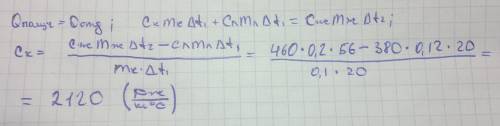 Qполуч = Qотд ; Cк mк Δt₁ + Cл mл Δt₁ = Cже mж Δt₂ ;
Cк = (Cже mж Δt₂ − Cл mл Δt₁) / (mк · Δt₁) = (460 · 0,2 · 56 − 380 · 0,12 · 20) / (0,1 · 20) =
= 2120 (Дж / кг°C)